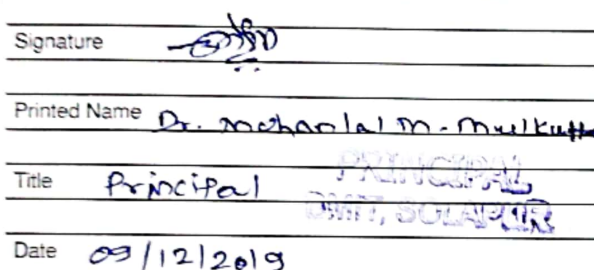 Signature
Printed Name Dr. Mohanlal M.
Title Principal
PRINCIPAL
SOLAPUR
Date 09/12/2019